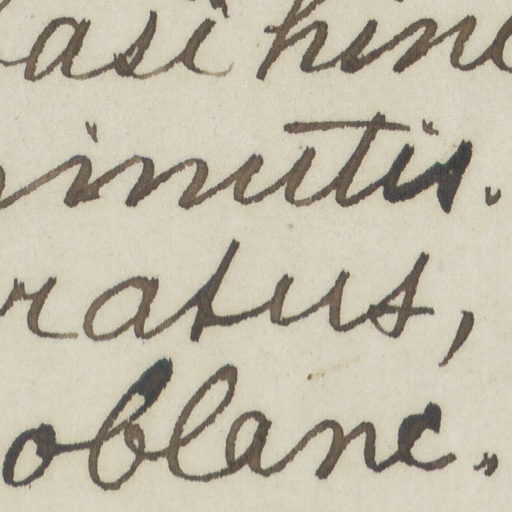 basi hinc
minutis.
ratus,
oblanc.